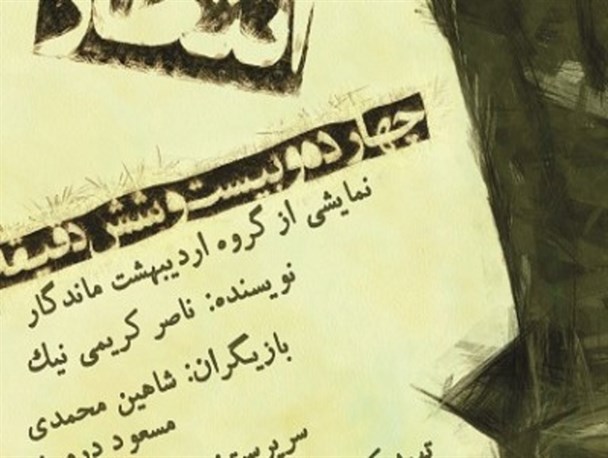 انتظار
چهار ده و بیست و شش دقیقه
نمایشی از گروه اردیبهشت ماندگار
نویسنده: ناصر کریمی نیك
بازیگران: شاهین محمدی
مسعود